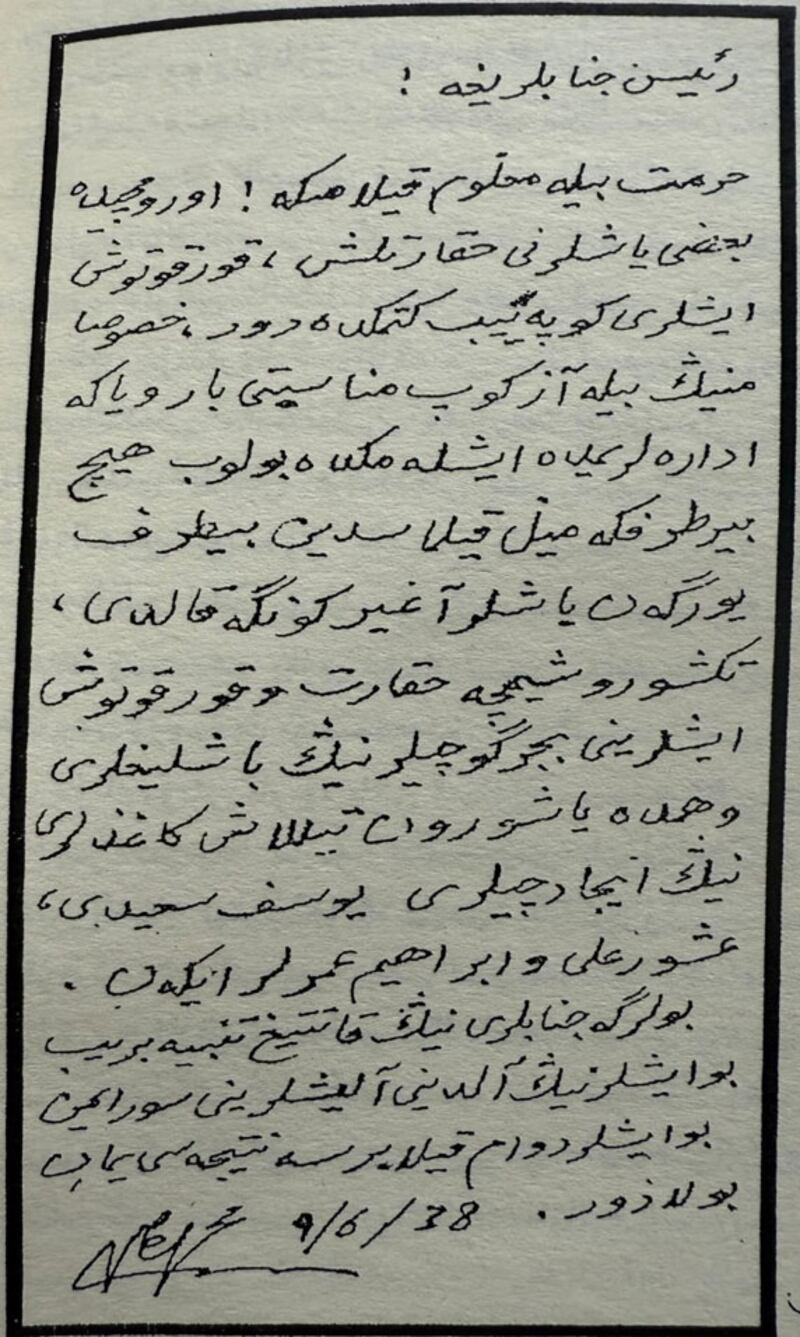 رئیس جنابلریغه !
حرمت بیله معلوم قیلامنکه ! اورومچیده
بعضی یاشلرنی حقارتلش ، قورقوتوش
ایشلری کوپه ییب کتمکده دور ، خصوصا
منینڭ بیله آز کوپ مناسبتی بار ویاکه
اداره لریمده ایشله مکده بولوب هیچ
بیرطرفکه میل قیلماسدین بیطرف
یورگه ن یاشلر آغیر کونگه قالدی ،
تکشوروشیمچه حقارت و قورقوتوش
ایشلرینی بجرگوچیلرنینڭ باشلیغلری
وهمده یاشورون تیللاش کاغذلری
نینڭ ایجادچیلری یوسف سعیدی ،
عشورعلی و ابراهیم عمرلر ایکه ن .
بولرگه جنابلری نینڭ قاتتیغ تنبیه بریب
بوایشلرنینڭ آلدینی آلیشلرینی سورایمن
بوایشلر دوام قیلابرسه نتیجه سی یمان
بولادور . 9/6/38